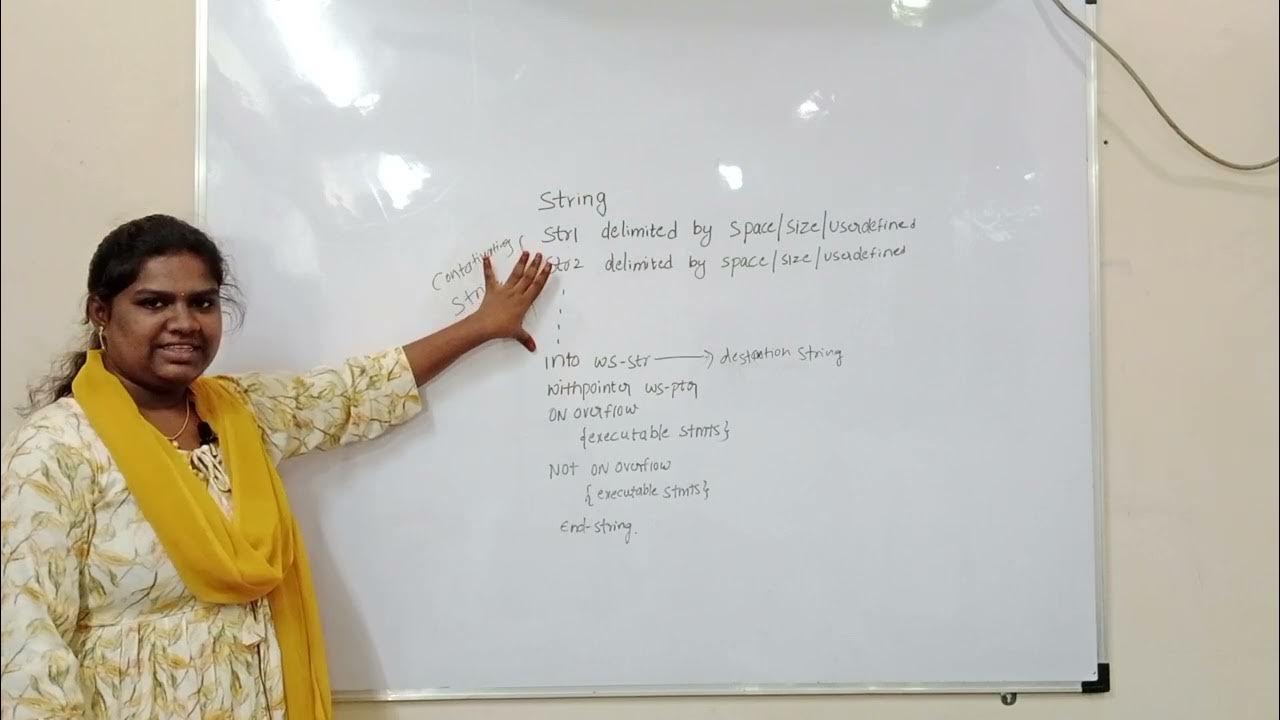 String
Str1 delimited by space/size/userdefined
Str2 delimited by space/size/userdefined
into ws-str → destantion string
withpointer ws-ptr
ON overflow
{executable stmts}
NOT ON overflow
{executable stmts}
End-string.